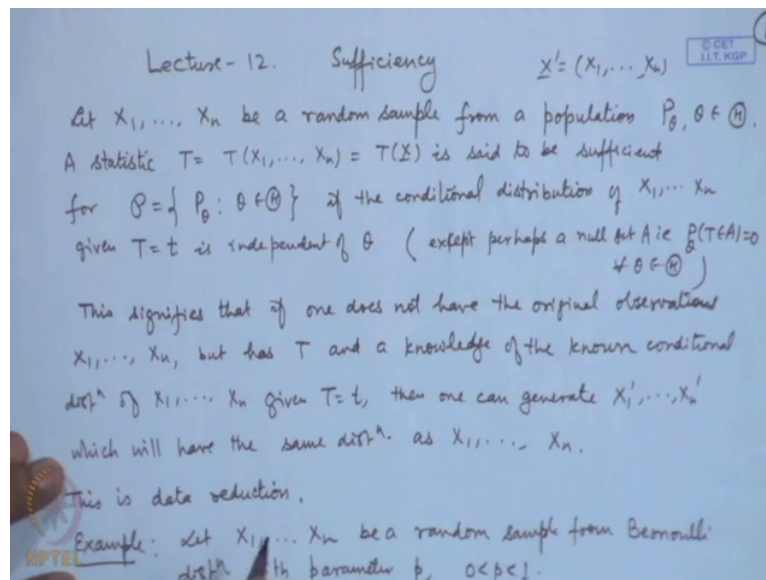 Lecture-12. Sufficiency X' = (X1, ..., Xn)
© CET
I.I.T. KGP
Let X1, ..., Xn be a random sample from a population Pθ, θ ∈ Θ.
A statistic T = T(X1, ..., Xn) = T(X) is said to be sufficient
for 𝒫 = { Pθ : θ ∈ Θ } if the conditional distribution of X1, ... Xn
given T = t is independent of θ ( except perhaps a null set A ie Pθ(T∈A)=0
∀ θ ∈ Θ )
This signifies that if one does not have the original observations
X1, ..., Xn, but has T and a knowledge of the known conditional
distⁿ of X1, ..., Xn given T = t, then one can generate X1', ..., Xn'
which will have the same distⁿ. as X1, ..., Xn.
This is data reduction.
Example: Let X1, ... Xn be a random sample from Bernoulli
distⁿ th parameter p, 0<p<1.
NPTEL